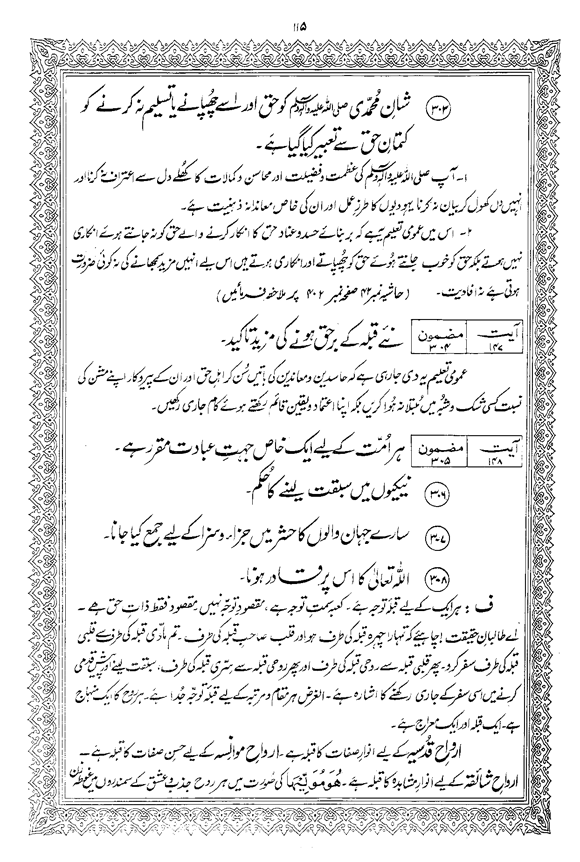 ۱۱۵
۳۰۳ شانِ محمّدی صلی اللہ علیہ وآلہ وسلم کو حق اور اسے چھپانے یا تسلیم نہ کرنے کو
کتمانِ حق سے تعبیر کیا گیا ہے۔
۱۔ آپ صلی اللہ علیہ وآلہ وسلم کی عظمت و فضیلت اور محاسن و کمالات کا کھلے دل سے اعتراف نہ کرنا اور
انہیں دل کھول کر بیان نہ کرنا یہودیوں کا طرزِ عمل اور ان کی خاص معاندانہ ذہنیت ہے۔
۲۔ اس میں عمومی تعلیم یہ ہے کہ بربنائے حسد و عناد حق کا انکار کرنے والے حق کو نہ جانتے ہوئے انکاری
نہیں ہوتے بلکہ حق کو خوب جانتے ہوئے حق کو چھپاتے اور انکاری ہوتے ہیں اس لیے انہیں مزید سمجھانے کی نہ کوئی ضرورت
ہوتی ہے نہ افادیت۔ (حاشیہ نمبر ۴۲ صفحہ نمبر ۴۰۲ پر ملاحظہ فرمائیں)
آیت ۱۴۷ مضمون ۳۰۴ نئے قبلہ کے برحق ہونے کی مزید تاکید۔
عمومی تعلیم یہ دی جا رہی ہے کہ حاسدین و معاندین کی باتیں سُن کر اہلِ حق اور ان کے پیروکار اپنے مشن کی
نسبت کسی شک و شبہ میں مُبتلا نہ ہوا کریں بلکہ اپنا اعتماد و یقین قائم رکھتے ہوئے کام جاری رکھیں۔
آیت ۱۴۸ مضمون ۳۰۵ ہر اُمّت کے لیے ایک خاص جہتِ عبادت مقرر ہے۔
۳۰۶ نیکیوں میں سبقت لینے کا حُکم۔
۳۰۷ سارے جہان والوں کا حشر میں جزا و سزا کے لیے جمع کیا جانا۔
۳۰۸ اللہ تعالیٰ کا اس پر قادر ہونا۔
ف: ہر ایک کے لیے قبلۂ توجہ ہے۔ کعبہ سمتِ توجہ ہے، مقصودِ توجّہ نہیں مقصود فقط ذاتِ حق ہے۔
اے طالبانِ حقیقت! چاہیے کہ تمہارا چہرہ قبلہ کی طرف ہو اور قلب صاحبِ قبلہ کی طرف۔ تم مادّی قبلہ کی طرف سے قلبی
قبلہ کی طرف سفر کرو۔ پھر قلبی قبلہ سے روحی قبلہ کی طرف اور پھر روحی قبلہ سے سِرّی قبلہ کی طرف، سبقت لینے اور پیش قدمی
کرنے میں اسی سفر کے جاری رکھنے کا اشارہ ہے۔ الغرض ہر مقام و مرتبہ کے لیے قبلۂ توجّہ جُدا ہے۔ ہر روح کا ایک منہاج
ہے، ایک قبلہ اور ایک معراج ہے۔
ارواحِ قدسیہ کے لیے انوارِ صفات کا قبلہ ہے۔ ارواحِ موانسہ کے لیے حسنِ صفات کا قبلہ ہے۔
ارواحِ شائقہ کے لیے انوارِ مشاہدہ کا قبلہ ہے۔ هُوَ مُوَلِّيْهَا کی صورت میں ہر روح جذب و عشق کے سمندروں میں غوطہ زن